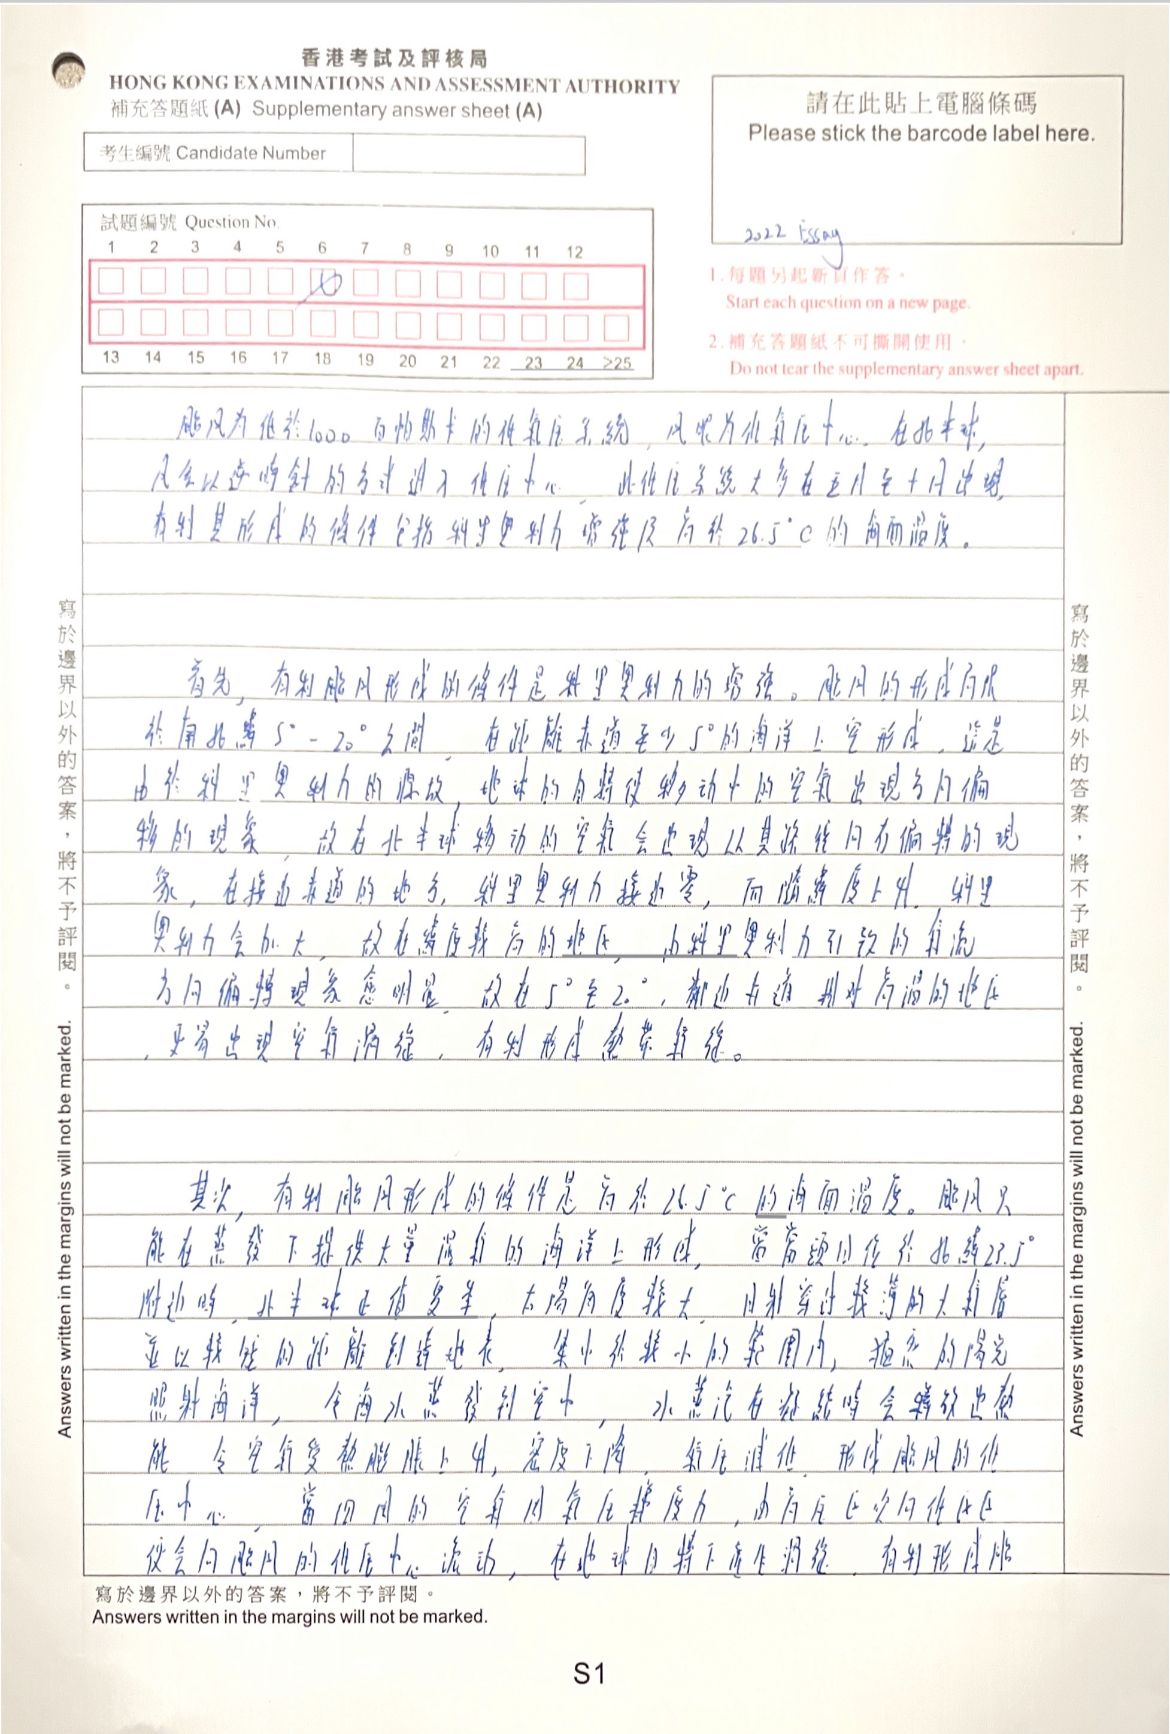 香港考試及評核局
HONG KONG EXAMINATIONS AND ASSESSMENT AUTHORITY
補充答題紙 (A) Supplementary answer sheet (A)
考生編號 Candidate Number
請在此貼上電腦條碼
Please stick the barcode label here.
2022 Essay
試題編號 Question No
1 2 3 4 5 6 7 8 9 10 11 12
13 14 15 16 17 18 19 20 21 22 23 24 >25
1. 每題另起新頁作答。
Start each question on a new page.
2. 補充答題紙不可撕開使用。
Do not tear the supplementary answer sheet apart.
颱风为低於1000百帕斯卡的低氣压系統,风眼为低氣压中心。在北半球,
风会以逆時針的方式进入低压中心,此低压系統大多在五月至十月出現,
有利其形成的條件包括科里奧利力需強及高於26.5°C的海面温度。
首先,有利颱风形成的條件是科里奧利力的增強。颱风的形成局限
於南北緯5°-20°之間,在距離赤道至少5°的海洋上空形成,這是
由於科里奧利力的緣故,地球的自轉使移动中的空氣出現方向偏
移的現象,故在北半球移动的空氣会出現以其路徑向右偏轉的現
象,在接近赤道的地方,科里奧利力接近零,而隨緯度上升,科里
奧利力会加大,故在緯度較高的地区,由科里奧利力引致的氣流
方向偏轉現象愈明显,故在5°至20°,鄰近赤道相对高温的地区
,更易出現空氣渦旋,有利形成熱帶氣旋。
其次,有利颱风形成的條件是高於26.5°C的海面温度。颱风只
能在蒸發下提供大量濕氣的海洋上形成,當當頭日位於北緯23.5°
附近時,北半球正值夏季,太陽角度較大,日射穿过較薄的大氣層
並以較短的距離到達地表,集中於較小的範圍內,猛烈的陽光
照射海洋,令海水蒸發到空中,水蒸汽在凝結時会釋放出熱
能,令空氣受熱膨脹上升,密度下降,氣压減低,形成颱风的低
压中心,當四周的空氣因氣压梯度力,由高压区吹向低压区
便会向颱风的低压中心流动,在地球自轉下產生渦旋,有利形成颱
寫於邊界以外的答案,將不予評閱。
Answers written in the margins will not be marked.
寫於邊界以外的答案,將不予評閱。
Answers written in the margins will not be marked.
寫於邊界以外的答案,將不予評閱。
Answers written in the margins will not be marked.
S1